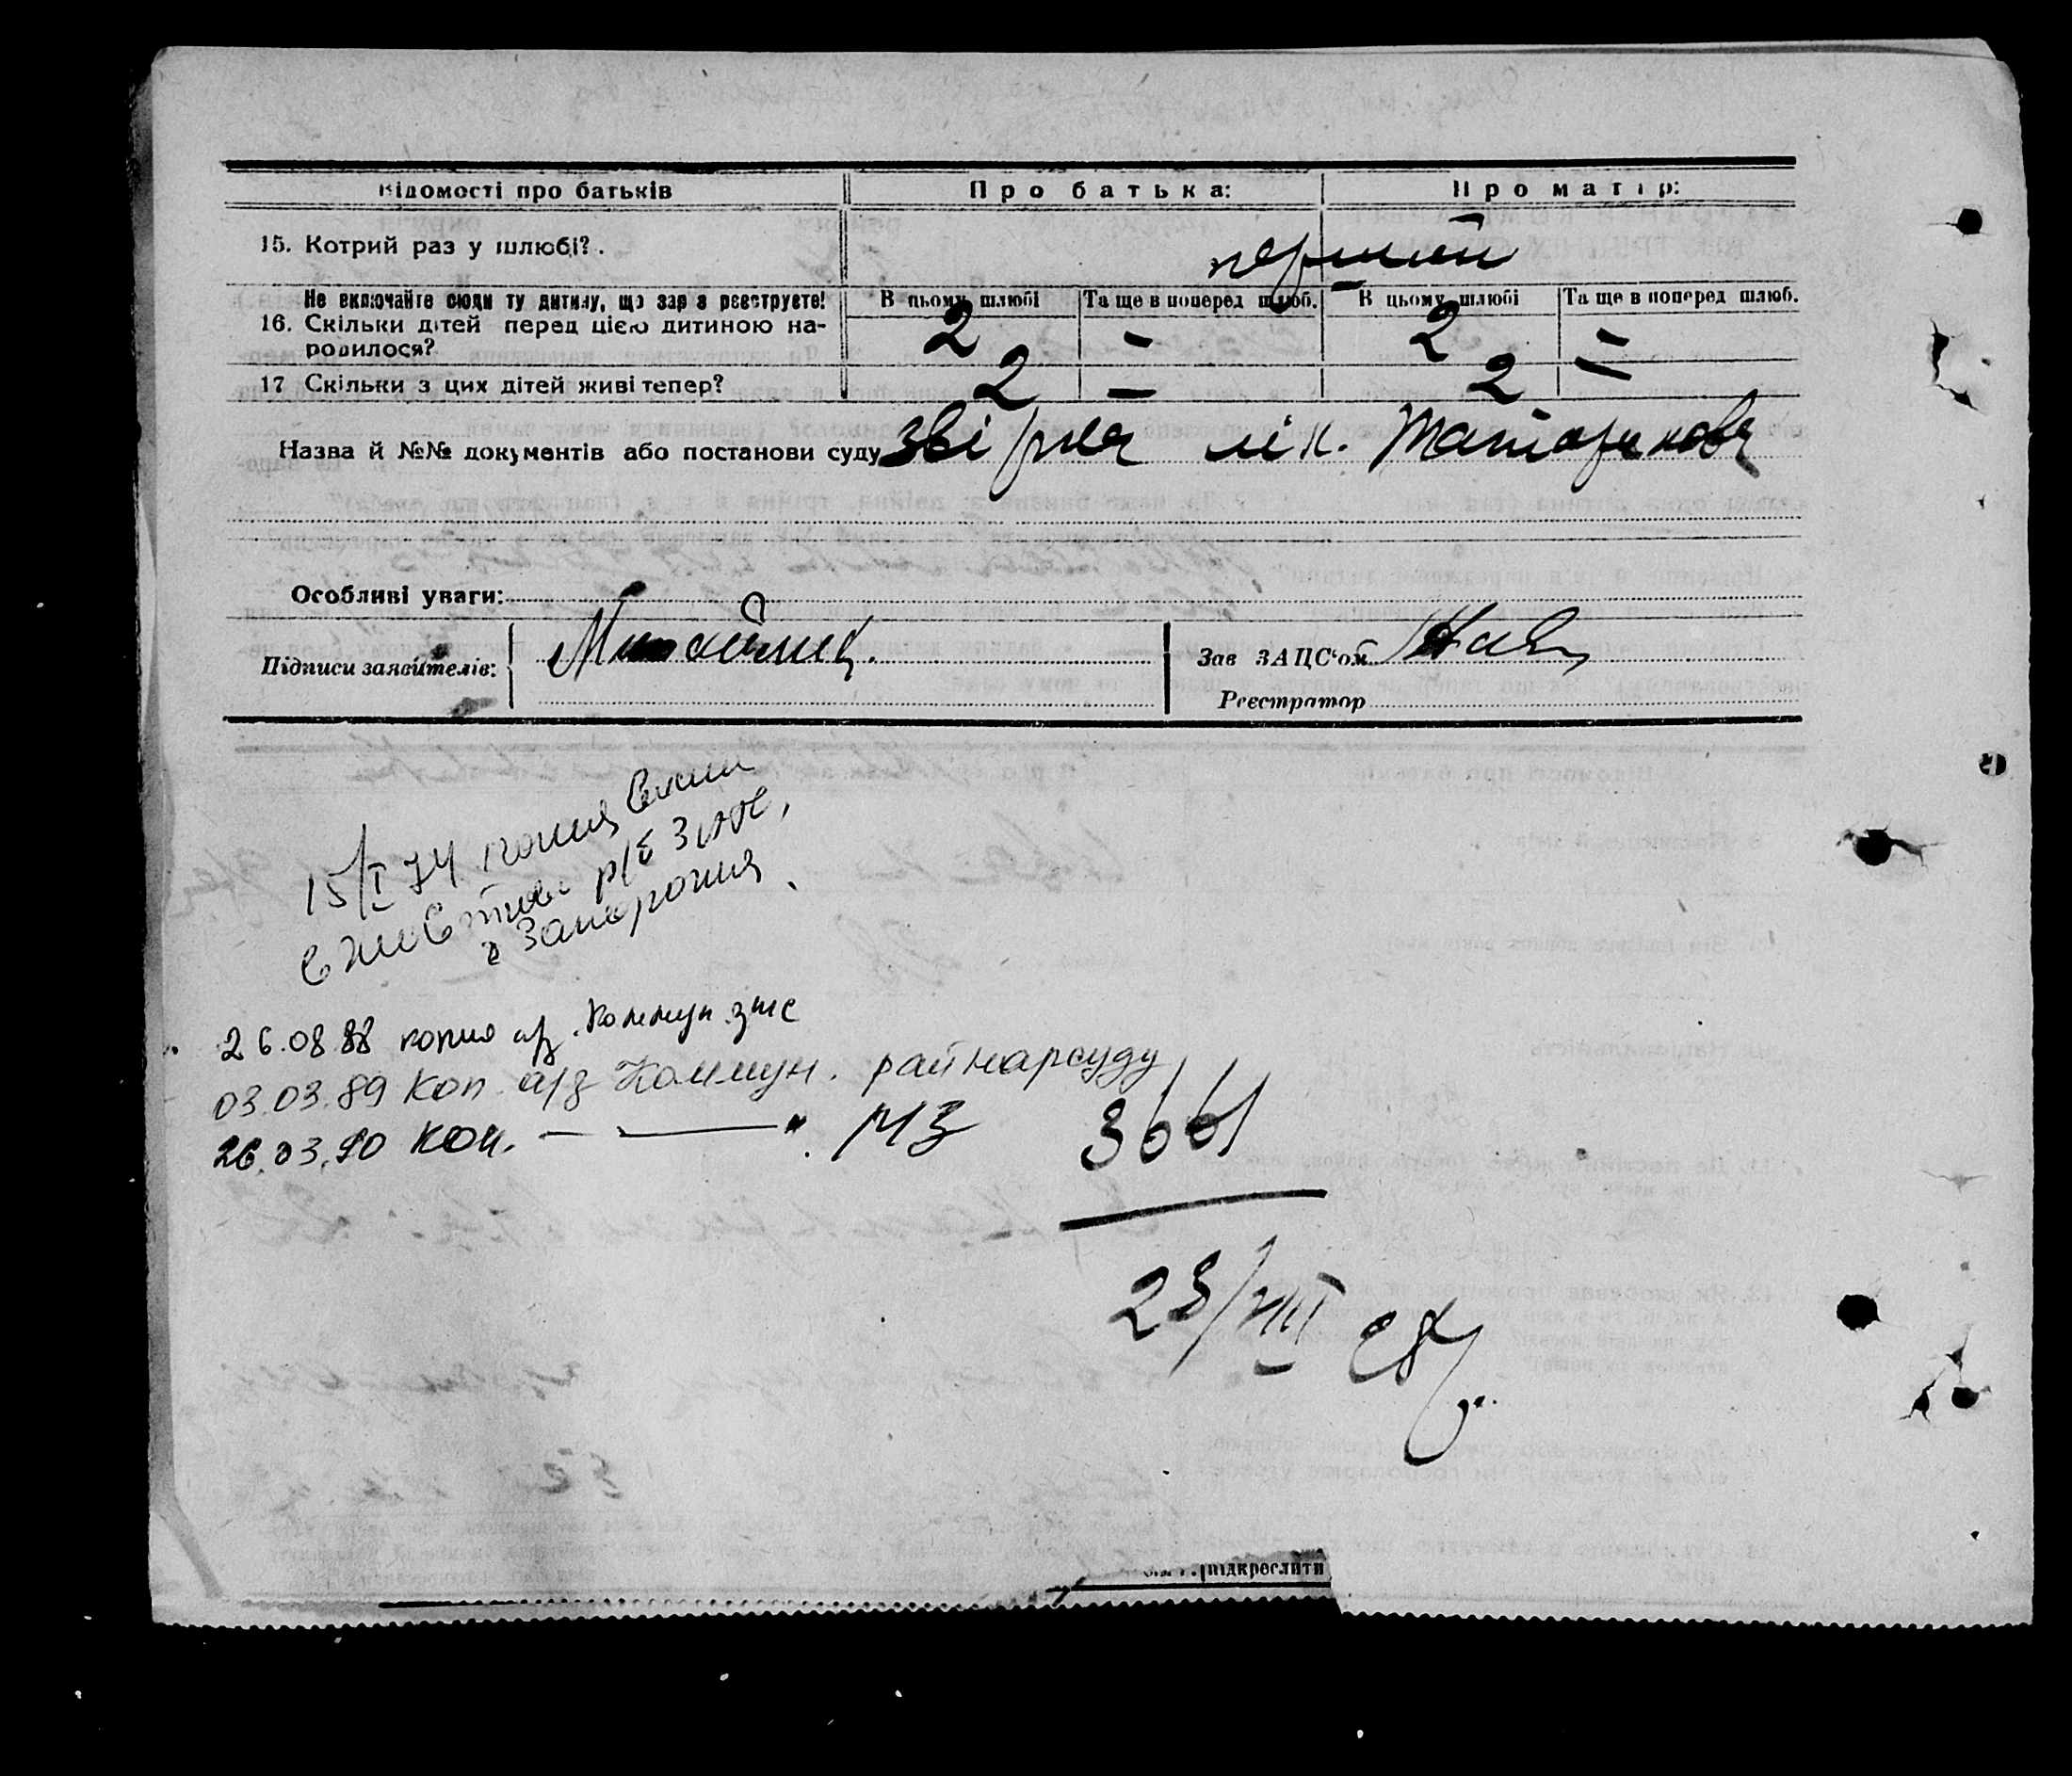 Відомості про батьків Про батька: Про матір:
15. Котрий раз у шлюбі? . перший
Не включайте сюди ту дитину, що зараз реєструєте! В цьому шлюбі Та ще в поперед шлюб. В цьому шлюбі Та ще в поперед шлюб.
16. Скільки дітей перед цією дитиною на-
родилося? 2 – 2 –
17 Скільки з цих дітей живі тепер? 2 – 2 –
Назва й №№ документів або постанови суду лік.
Особливі уваги:
Підписи заявителів: Зав ЗАЦС'ом
Реєстратор
15/I 74
р/б ЗАГС,
г Запорожия
26.08.88 копия а/з. Коммун. загс
03.03.89 Коп. а/з Коммун. райнарсуду
26.03.90 Коп. — — " МЗ
3661
23/VIII
підкреслити